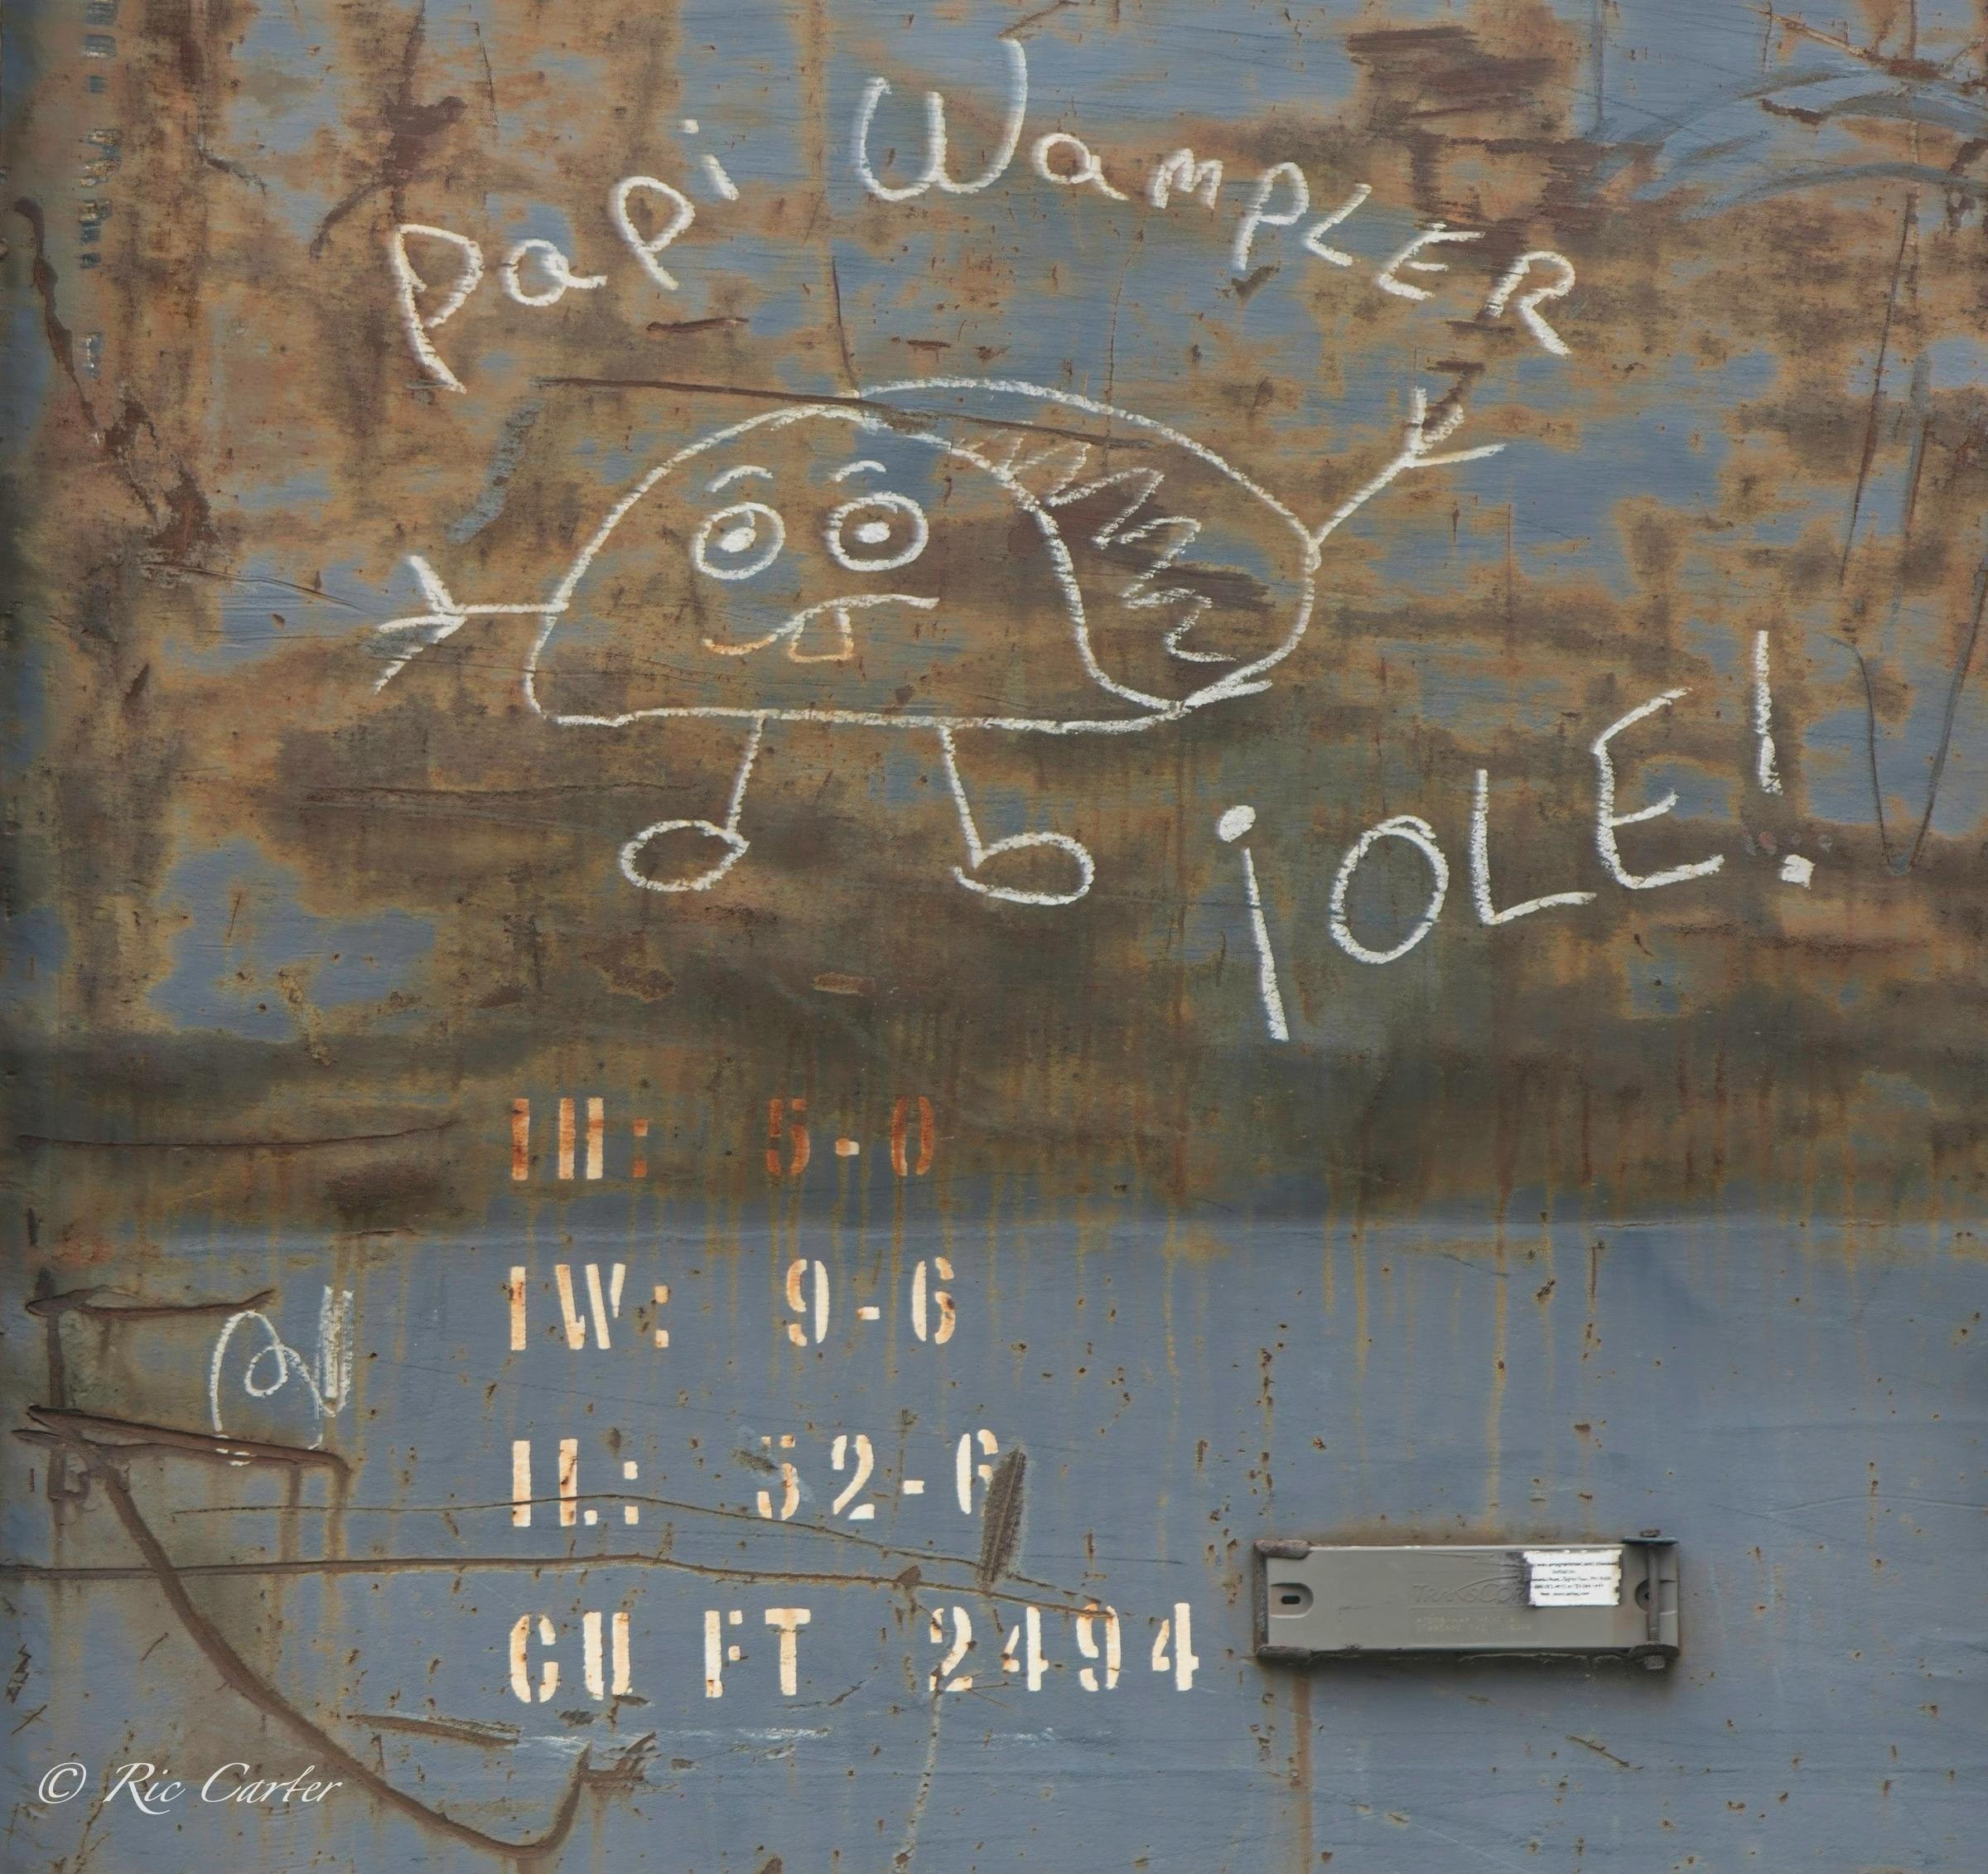 Papi WamPLER
¡OLE!
IH: 5-0
IW: 9-6
IL: 52-6
CU FT 2494
© Ric Carter